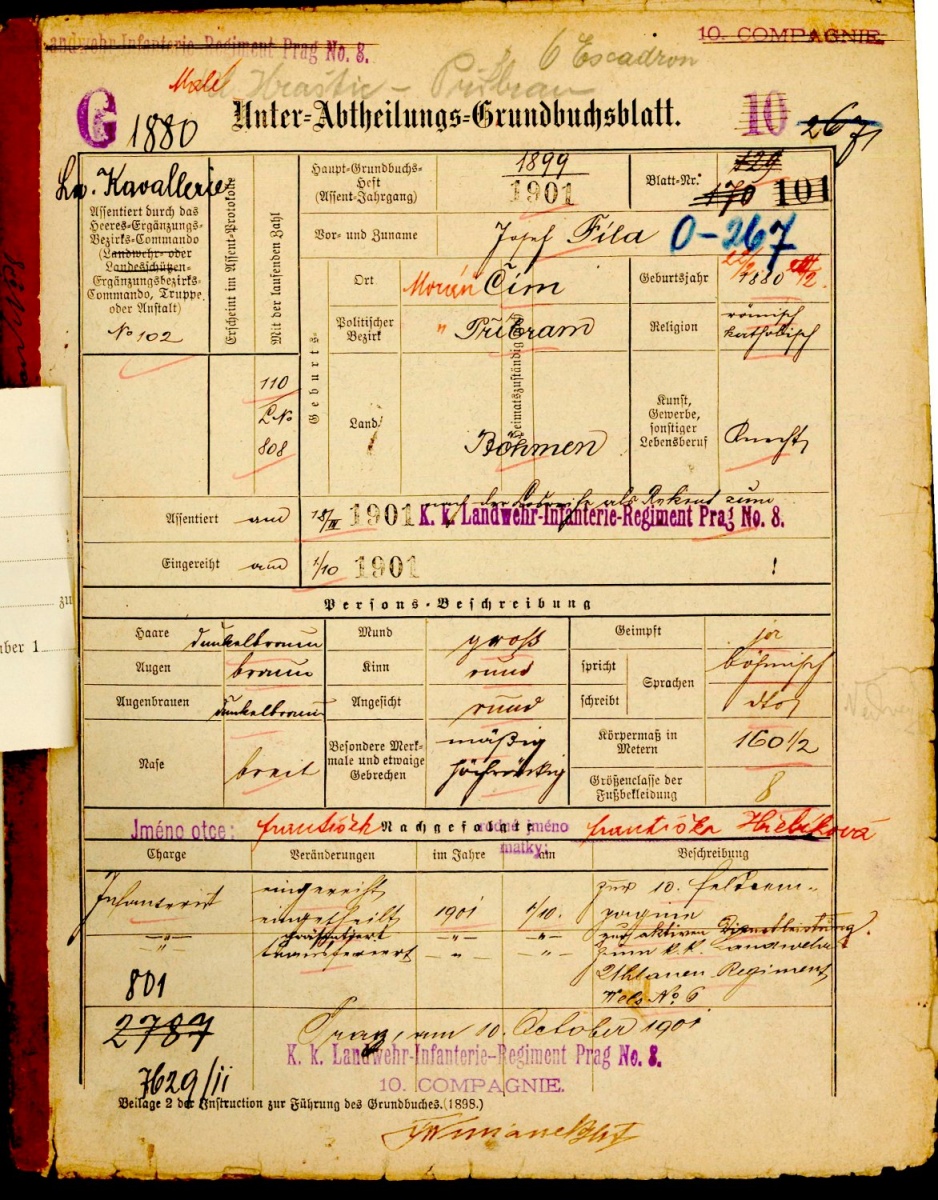 Landwehr-Infanterie-Regiment Prag No. 8.
10. COMPAGNIE.
6 Escadron
Malé Hraštic - Přibram
G 1880
Unter-Abtheilungs-Grundbuchsblatt.
10 267
Lw. Kavallerie
Assentiert durch das
Heeres-Ergänzungs-
Bezirks-Commando
(Landwehr- oder
Landesschützen-
Ergänzungsbezirks-
Commando, Truppe
oder Anstalt)
No 102
Erscheint im Assent-Protokolle
Mit der laufenden Zahl
110
LNo
808
Haupt-Grundbuchs-
Heft
(Assent-Jahrgang)
1899
1901
Blatt-Nr.
129
170 101
Vor- und Zuname
Josef Fíla
O-267
Geburts-
Heimatszuständig
Ort
Čim
Geburtsjahr
1880
Politischer
Bezirk
" Přibram
Religion
römisch
katholisch
Land
Böhmen
Kunst,
Gewerbe,
sonstiger
Lebensberuf
Knecht
Assentiert am 18/IV 1901
als Rekrut zum
K. k. Landwehr-Infanterie-Regiment Prag No. 8.
Eingereiht am 1/10 1901 !
Persons-Beschreibung
Haare dunkelbraun Mund groß Geimpft ja
Augen braun Kinn rund spricht böhmisch
Sprachen
Augenbrauen dunkelbraun Angesicht rund schreibt dto
Nase breit
Besondere Merk-
male und etwaige
Gebrechen
mäßig
Körpermaß in
Metern
160 1/2
Größenclasse der
Fußbekleidung
8
Jméno otce: František Nachgefolgte rodné jméno
matky: Františka Hřebíková
Charge Veränderungen im Jahre am Beschreibung
Infanterist eingereiht zur 10. Feldcom-
eingetheilt 1901 1/10. pagnie
" präsentiert " " zur aktiven Dienstleistung.
" transferiert " " zum k.k. Landwehr
801 Uhlanen Regiment
Wels No 6
2787 Prag, am 10. October 1901
K. k. Landwehr-Infanterie-Regiment Prag No. 8.
10. COMPAGNIE.
7629/II
Beilage 2 der Instruction zur Führung des Grundbuches. (1898.)
zu
ber 1